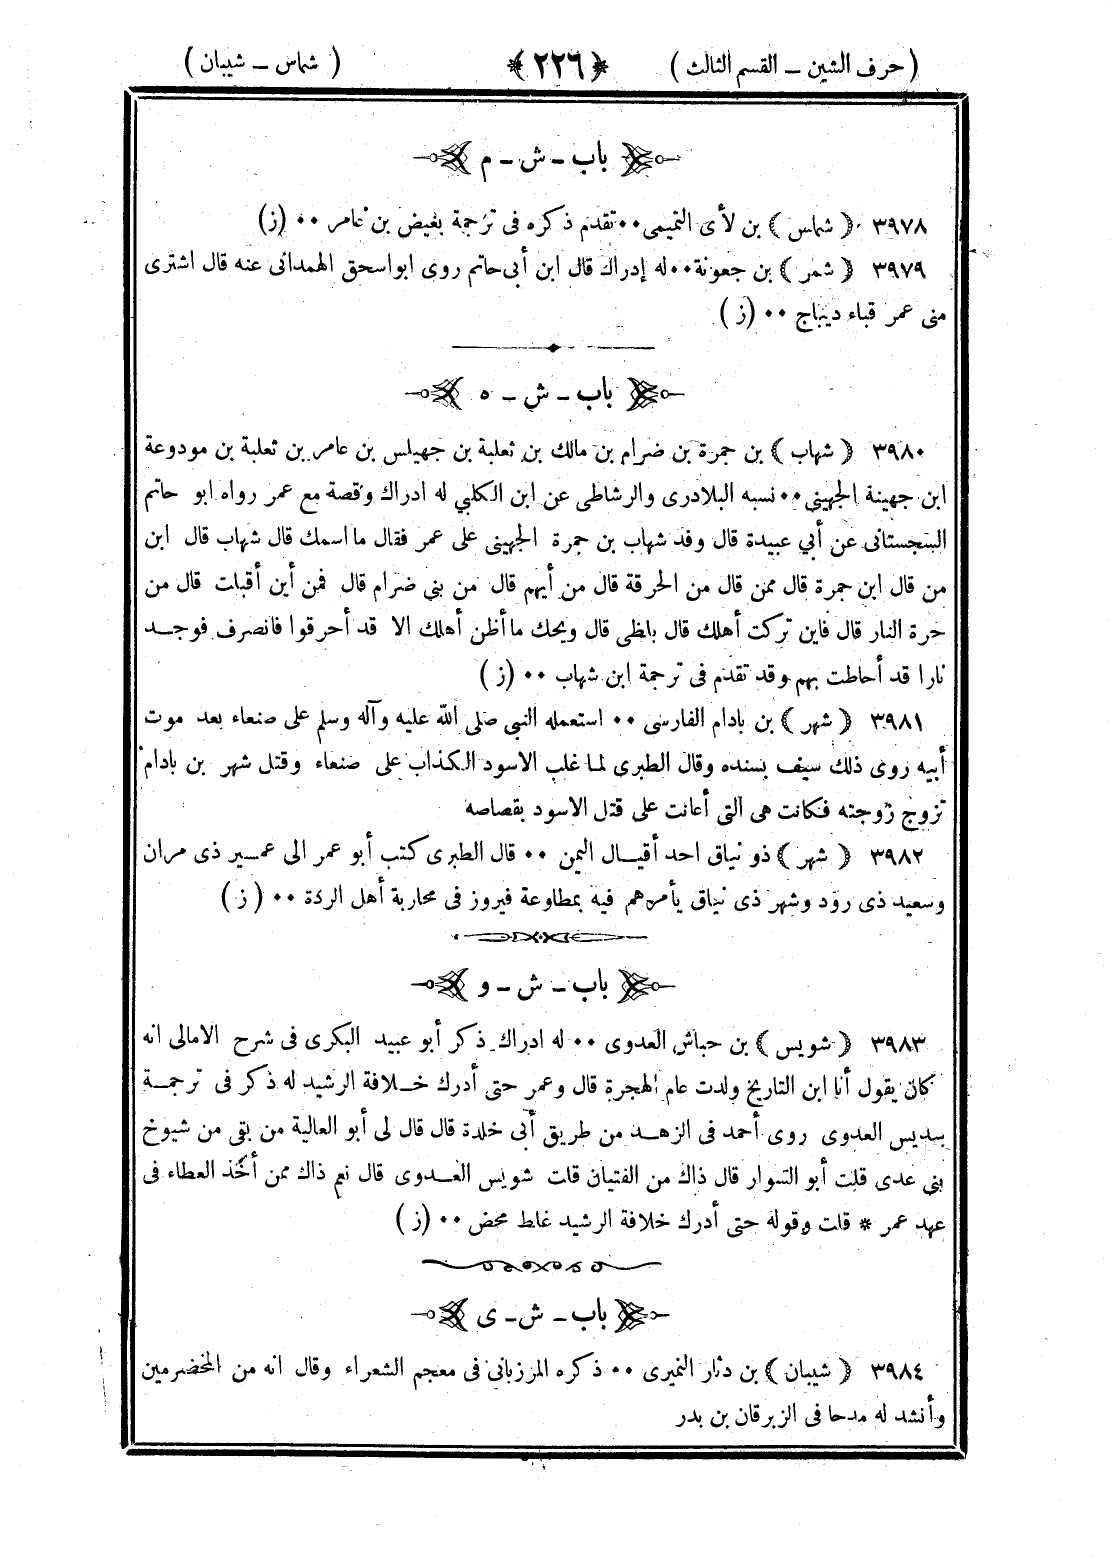 ( حرف الشين ـ القسم الثالث ) ﴿ ٢٢٦ ﴾ ( شماس ـ شيبان )
باب ـ ش ـ م
٣٩٧٨ ( شماس ) بن لأى التميمى ٠٠ تقدم ذكره فى ترجمة بغيض بن عامر ٠٠ (ز)
٣٩٧٩ ( شمر ) بن جعونة ٠٠ له إدراك قال ابن أبى حاتم روى ابواسحق الهمدانى عنه قال اشترى
منى عمر قباء ديباج ٠٠ (ز)
باب ـ ش ـ ه
٣٩٨٠ ( شهاب ) بن جمرة بن ضرام بن مالك بن ثعلبة بن جهيلس بن عامر بن ثعلبة بن مودوعة
ابن جهينة الجهيني ٠٠ نسبه البلادرى والرشاطى عن ابن الكلبي له ادراك وقصة مع عمر رواه ابو حاتم
السجستانى عن أبي عبيدة قال وفد شهاب بن جمرة الجهينى على عمر فقال ما اسمك قال شهاب قال ابن
من قال ابن جمرة قال ممن قال من الحرقة قال من أيهم قال من بني ضرام قال فمن أين أقبلت قال من
حرة النار قال فاين تركت أهلك قال بلظى قال ويحك ما أظن أهلك الا قد أحرقوا فانصرف فوجد
نارا قد أحاطت بهم وقد تقدم فى ترجمة ابن شهاب ٠٠ (ز)
٣٩٨١ ( شهر ) بن بادام الفارسى ٠٠ استعمله النبي صلى الله عليه وآله وسلم على صنعاء بعد موت
أبيه روى ذلك سيف بسنده وقال الطبرى لما غلب الاسود الكذاب على صنعاء وقتل شهر بن بادام
تزوج زوجته فكانت هى التى أعانت على قتل الاسود بقصاصه
٣٩٨٢ ( شهر ) ذو نياق احد أقيال اليمن ٠٠ قال الطبرى كتب أبو عمر الى عمير ذى مران
وسعيد ذى رود وشهر ذى نياق يأمرهم فيه بمطاوعة فيروز فى محاربة أهل الردة ٠٠ ( ز )
باب ـ ش ـ و
٣٩٨٣ ( شويس ) بن حباش العدوى ٠٠ له ادراك ذكر أبو عبيد البكرى فى شرح الامالى انه
كان يقول أنا ابن التاريخ ولدت عام الهجرة قال وعمر حتى أدرك خلافة الرشيد له ذكر فى ترجمة
سديس العدوى روى أحمد فى الزهد من طريق أبى خلدة قال قال لى أبو العالية من بقى من شيوخ
بنى عدى قلت أبو السوار قال ذاك من الفتيان قلت شويس العدوى قال نعم ذاك ممن أخذ العطاء فى
عهد عمر * قلت وقوله حتى أدرك خلافة الرشيد غلط محض ٠٠ (ز)
باب ـ ش ـ ى
٣٩٨٤ ( شيبان ) بن دثار النميرى ٠٠ ذكره المرزبانى فى معجم الشعراء وقال انه من المخضرمين
وأنشد له مدحا فى الزبرقان بن بدر